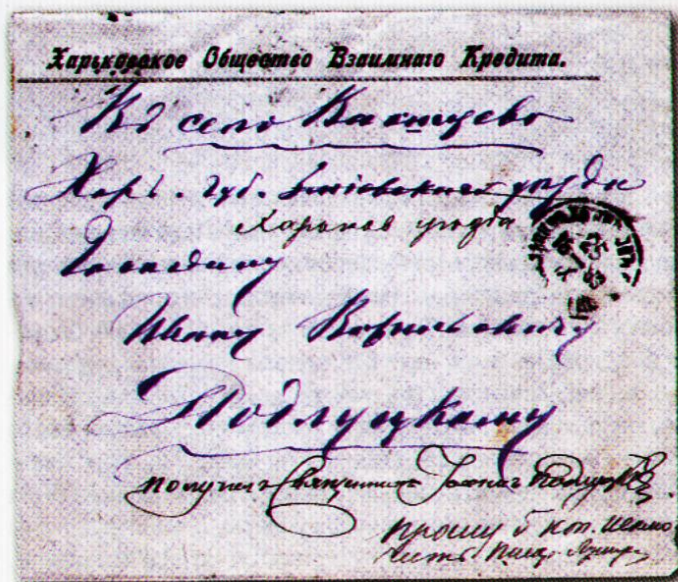 Харьковское Общество Взаимнаго Кредита.
Въ село
Харь. губ. Зміевскаго уѣзда
Харьков уезда
Господину
Ивану Васильевичу
Подлуцкому
получилъ Священникъ Іоаннъ Подлуцкій
прошу 5 коп.